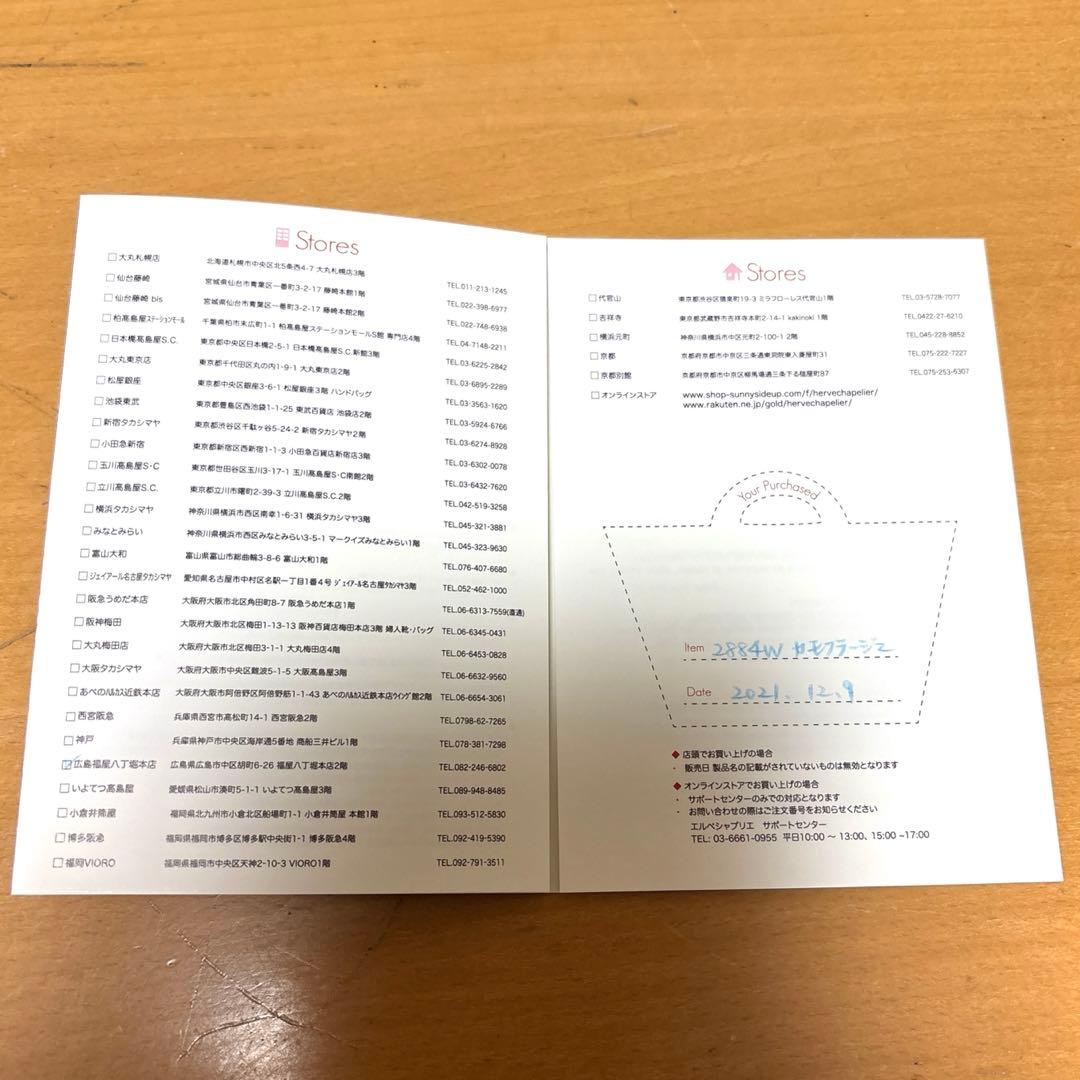 Stores
大丸札幌店 北海道札幌市中央区北5条西4-7 大丸札幌店3階 TEL.011-213-1245
仙台藤崎 宮城県仙台市青葉区一番町3-2-17 藤崎本館1階 TEL.022-398-6977
仙台藤崎 bis 宮城県仙台市青葉区一番町3-2-17 藤崎本館2階 TEL.022-748-6938
柏高島屋ステーションモール 千葉県柏市末広町1-1 柏高島屋ステーションモールS館 専門店4階 TEL.04-7148-2211
日本橋高島屋S.C. 東京都中央区日本橋2-5-1 日本橋高島屋S.C.新館3階 TEL.03-6225-2842
大丸東京店 東京都千代田区丸の内1-9-1 大丸東京店2階 TEL.03-6895-2289
松屋銀座 東京都中央区銀座3-6-1 松屋銀座3階 ハンドバッグ TEL.03-3563-1620
池袋東武 東京都豊島区西池袋1-1-25 東武百貨店 池袋店2階 TEL.03-5924-6766
新宿タカシマヤ 東京都渋谷区千駄ヶ谷5-24-2 新宿タカシマヤ2階 TEL.03-6274-8928
小田急新宿 東京都新宿区西新宿1-1-3 小田急百貨店新宿店3階 TEL.03-6302-0078
玉川高島屋S・C 東京都世田谷区玉川3-17-1 玉川高島屋S・C南館2階 TEL.03-6432-7620
立川高島屋S.C. 東京都立川市曙町2-39-3 立川高島屋S.C.2階 TEL.042-519-3258
横浜タカシマヤ 神奈川県横浜市西区南幸1-6-31 横浜タカシマヤ3階 TEL.045-321-3881
みなとみらい 神奈川県横浜市西区みなとみらい3-5-1 マークイズみなとみらい1階 TEL.045-323-9630
富山大和 富山県富山市総曲輪3-8-6 富山大和1階 TEL.076-407-6680
ジェイアール名古屋タカシマヤ 愛知県名古屋市中村区名駅一丁目1番4号 ジェイアール名古屋タカシマヤ3階 TEL.052-462-1000
阪急うめだ本店 大阪府大阪市北区角田町8-7 阪急うめだ本店1階 TEL.06-6313-7559(直通)
阪神梅田 大阪府大阪市北区梅田1-13-13 阪神百貨店梅田本店3階 婦人靴・バッグ TEL.06-6345-0431
大丸梅田店 大阪府大阪市北区梅田3-1-1 大丸梅田店4階 TEL.06-6453-0828
大阪タカシマヤ 大阪府大阪市中央区難波5-1-5 大阪高島屋3階 TEL.06-6632-9560
あべのハルカス近鉄本店 大阪府大阪市阿倍野区阿倍野筋1-1-43 あべのハルカス近鉄本店ウイング館2階 TEL.06-6654-3061
西宮阪急 兵庫県西宮市高松町14-1 西宮阪急2階 TEL.0798-62-7265
神戸 兵庫県神戸市中央区海岸通5番地 商船三井ビル1階 TEL.078-381-7298
広島福屋八丁堀本店 広島県広島市中区胡町6-26 福屋八丁堀本店2階 TEL.082-246-6802
いよてつ高島屋 愛媛県松山市湊町5-1-1 いよてつ高島屋3階 TEL.089-948-8485
小倉井筒屋 福岡県北九州市小倉北区船場町1-1 小倉井筒屋 本館1階 TEL.093-512-5830
博多阪急 福岡県福岡市博多区博多駅中央街1-1 博多阪急4階 TEL.092-419-5390
福岡VIORO 福岡県福岡市中央区天神2-10-3 VIORO1階 TEL.092-791-3511
Stores
代官山 東京都渋谷区猿楽町19-3 ミラフローレス代官山1階 TEL.03-5728-7077
吉祥寺 東京都武蔵野市吉祥寺本町2-14-1 kakinoki 1階 TEL.0422-27-6210
横浜元町 神奈川県横浜市中区元町2-100-1 2階 TEL.045-228-8852
京都 京都府京都市中京区三条通東洞院東入菱屋町31 TEL.075-222-7227
京都別館 京都府京都市中京区柳馬場通三条下る槌屋町87 TEL.075-253-6307
オンラインストア www.shop-sunnysideup.com/f/hervechapelier/
www.rakuten.ne.jp/gold/hervechapelier/
Your Purchased
Item 2884W カモフラージュ
Date 2021.12.9
◆店頭でお買い上げの場合
・ 販売日 製品名の記載がされていないものは無効となります
◆オンラインストアでお買い上げの場合
・ サポートセンターのみでの対応となります
・ お問い合わせの際はご注文番号をお知らせください
エルベシャプリエ サポートセンター
TEL: 03-6661-0955 平日10:00 ~ 13:00、15:00 ~17:00